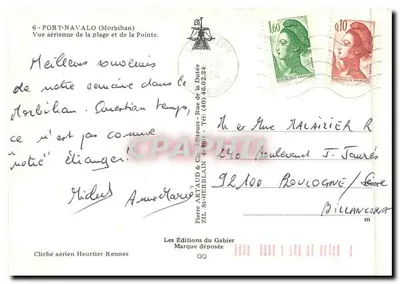 6 - PORT-NAVALO (Morbihan)
Vue aérienne de la plage et de la Pointe.
1,60
0,10
Meilleurs souvenirs
de notre semaine dans le
Morbihan. Question temps,
ce n'est pas comme
"notre" étranger!
Michel Anne Marie
Pierre ARTAUD & Cie, Éditeurs - Rue de la Dutée
ZIL St-HERBLAIN Tél. (40) 46.02.24
M et Mme MALAIZIER R
240 Boulevard J. Jaurès
92100 BOULOGNE/
BILLANCOURT
Les Editions du Gabier
Marque déposée
Cliché aérien Heurtier Rennes